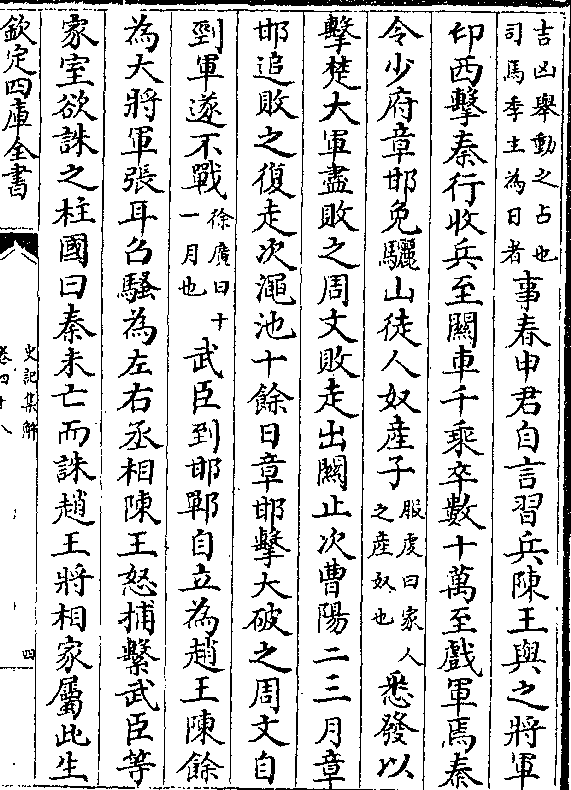 吉凶舉動之占也
司馬季主為日者
事春申君自言習兵陳王與之將軍
印西擊秦行收兵至關車千乘卒數十萬至戲軍焉秦
令少府章邯免驪山徒人奴産子
服虔曰家人
之産奴也
悉發以
擊楚大軍盡敗之周文敗走出關止次曹陽二三月章
邯追敗之復走次澠池十餘日章邯擊大破之周文自
剄軍遂不戰
徐廣曰十
一月也
武臣到邯鄲自立為趙王陳餘
為大將軍張耳召騷為左右丞相陳王怒捕繫武臣等
家室欲誅之柱國曰秦未亡而誅趙王將相家屬此生
欽定四庫全書
史記集解
卷四十八
四